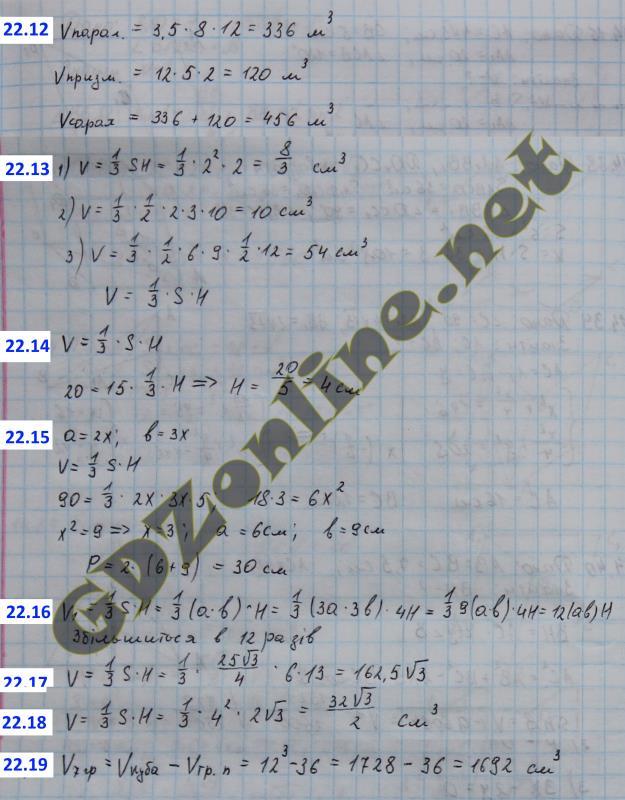 22.12 Vпарал. = 3,5 · 8 · 12 = 336 м³
Vпризм. = 12 · 5 · 2 = 120 м³
Vсарая = 336 + 120 = 456 м³
22.13 1) V = 1/3 SH = 1/3 · 2² · 2 = 8/3 см³
2) V = 1/3 · 1/2 · 2 · 3 · 10 = 10 см³
3) V = 1/3 · 1/2 · 6 · 9 · 1/2 · 12 = 54 см³
V = 1/3 · S · H
22.14 V = 1/3 · S · H
20 = 15 · 1/3 · H => H = 20/5 = 4 см
22.15 a = 2x; b = 3x
V = 1/3 S·H
90 = 1/3 · 2x · 3x · 5; 18·3 = 6x²
x² = 9 => x = 3; a = 6см; b = 9см
P = 2 · (6+9) = 30 см
22.16 V₁ = 1/3 S·H = 1/3 (a·b) · H = 1/3 (3a · 3b) · 4H = 1/3 9(a·b)·4H = 12(ab)H
Збільшиться в 12 разів
22.17 V = 1/3 S·H = 1/3 · 25√3/4 · 6·13 = 162,5√3
22.18 V = 1/3 S·H = 1/3 · 4² · 2√3 = 32√3/2 см³
22.19 Vчгр = Vкуба − Vгр.п = 12³ − 36 = 1728 − 36 = 1692 см³
GDZonline.net